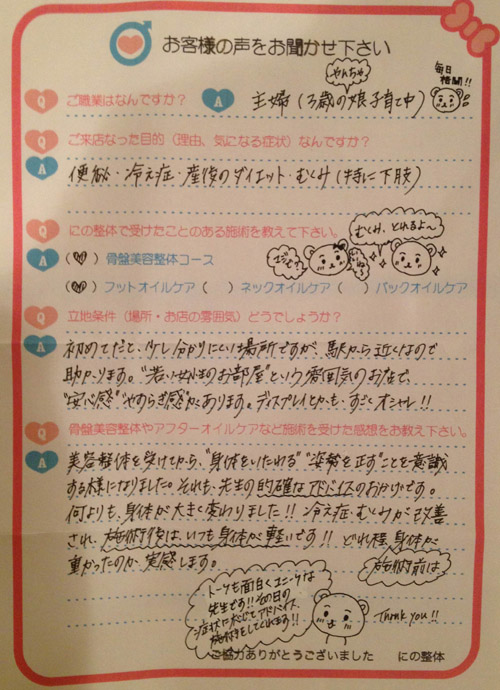 お客様の声をお聞かせ下さい
やんちゃ
毎日
格闘!!
Q ご職業はなんですか?
A 主婦(3歳の娘子育て中)
Q ご来店なった目的(理由、気になる症状)なんですか?
A 便秘・冷え症・産後のダイエット・むくみ(特に下肢)
Q にの整体で受けたことのある施術を教えて下さい。
むくみ、とれるよ〜
A (♥)骨盤美容整体コース
(♥)フットオイルケア( )ネックオイルケア( )バックオイルケア
Q 立地条件(場所・お店の雰囲気)どうでしょうか?
A 初めてだと、少し分かりにくい場所ですが、駅から近くなので
助かります。“若い女性のお部屋”という雰囲気のお店で、
“安心感”“やすらぎ感”があります。ディスプレイとかも、すごくオシャレ!!
Q 骨盤美容整体やアフターオイルケアなど施術を受けた感想をお教え下さい。
A 美容整体を受けてから、“身体をいたわる”“姿勢を正す”ことを意識
する様になりました。それも、先生の的確なアドバイスのおかげです。
何よりも、身体が大きく変わりました!! 冷え症・むくみが改善
され、施術後は、いつも身体が軽いです!! どれ程、身体が
重かったのか、実感します。
施術前は、
トークも面白くユニークな
先生です!!その日の
症状に応じてアドバイス、
施術をしてくれます!!
Thank you!!
ご協力ありがとうございました にの整体